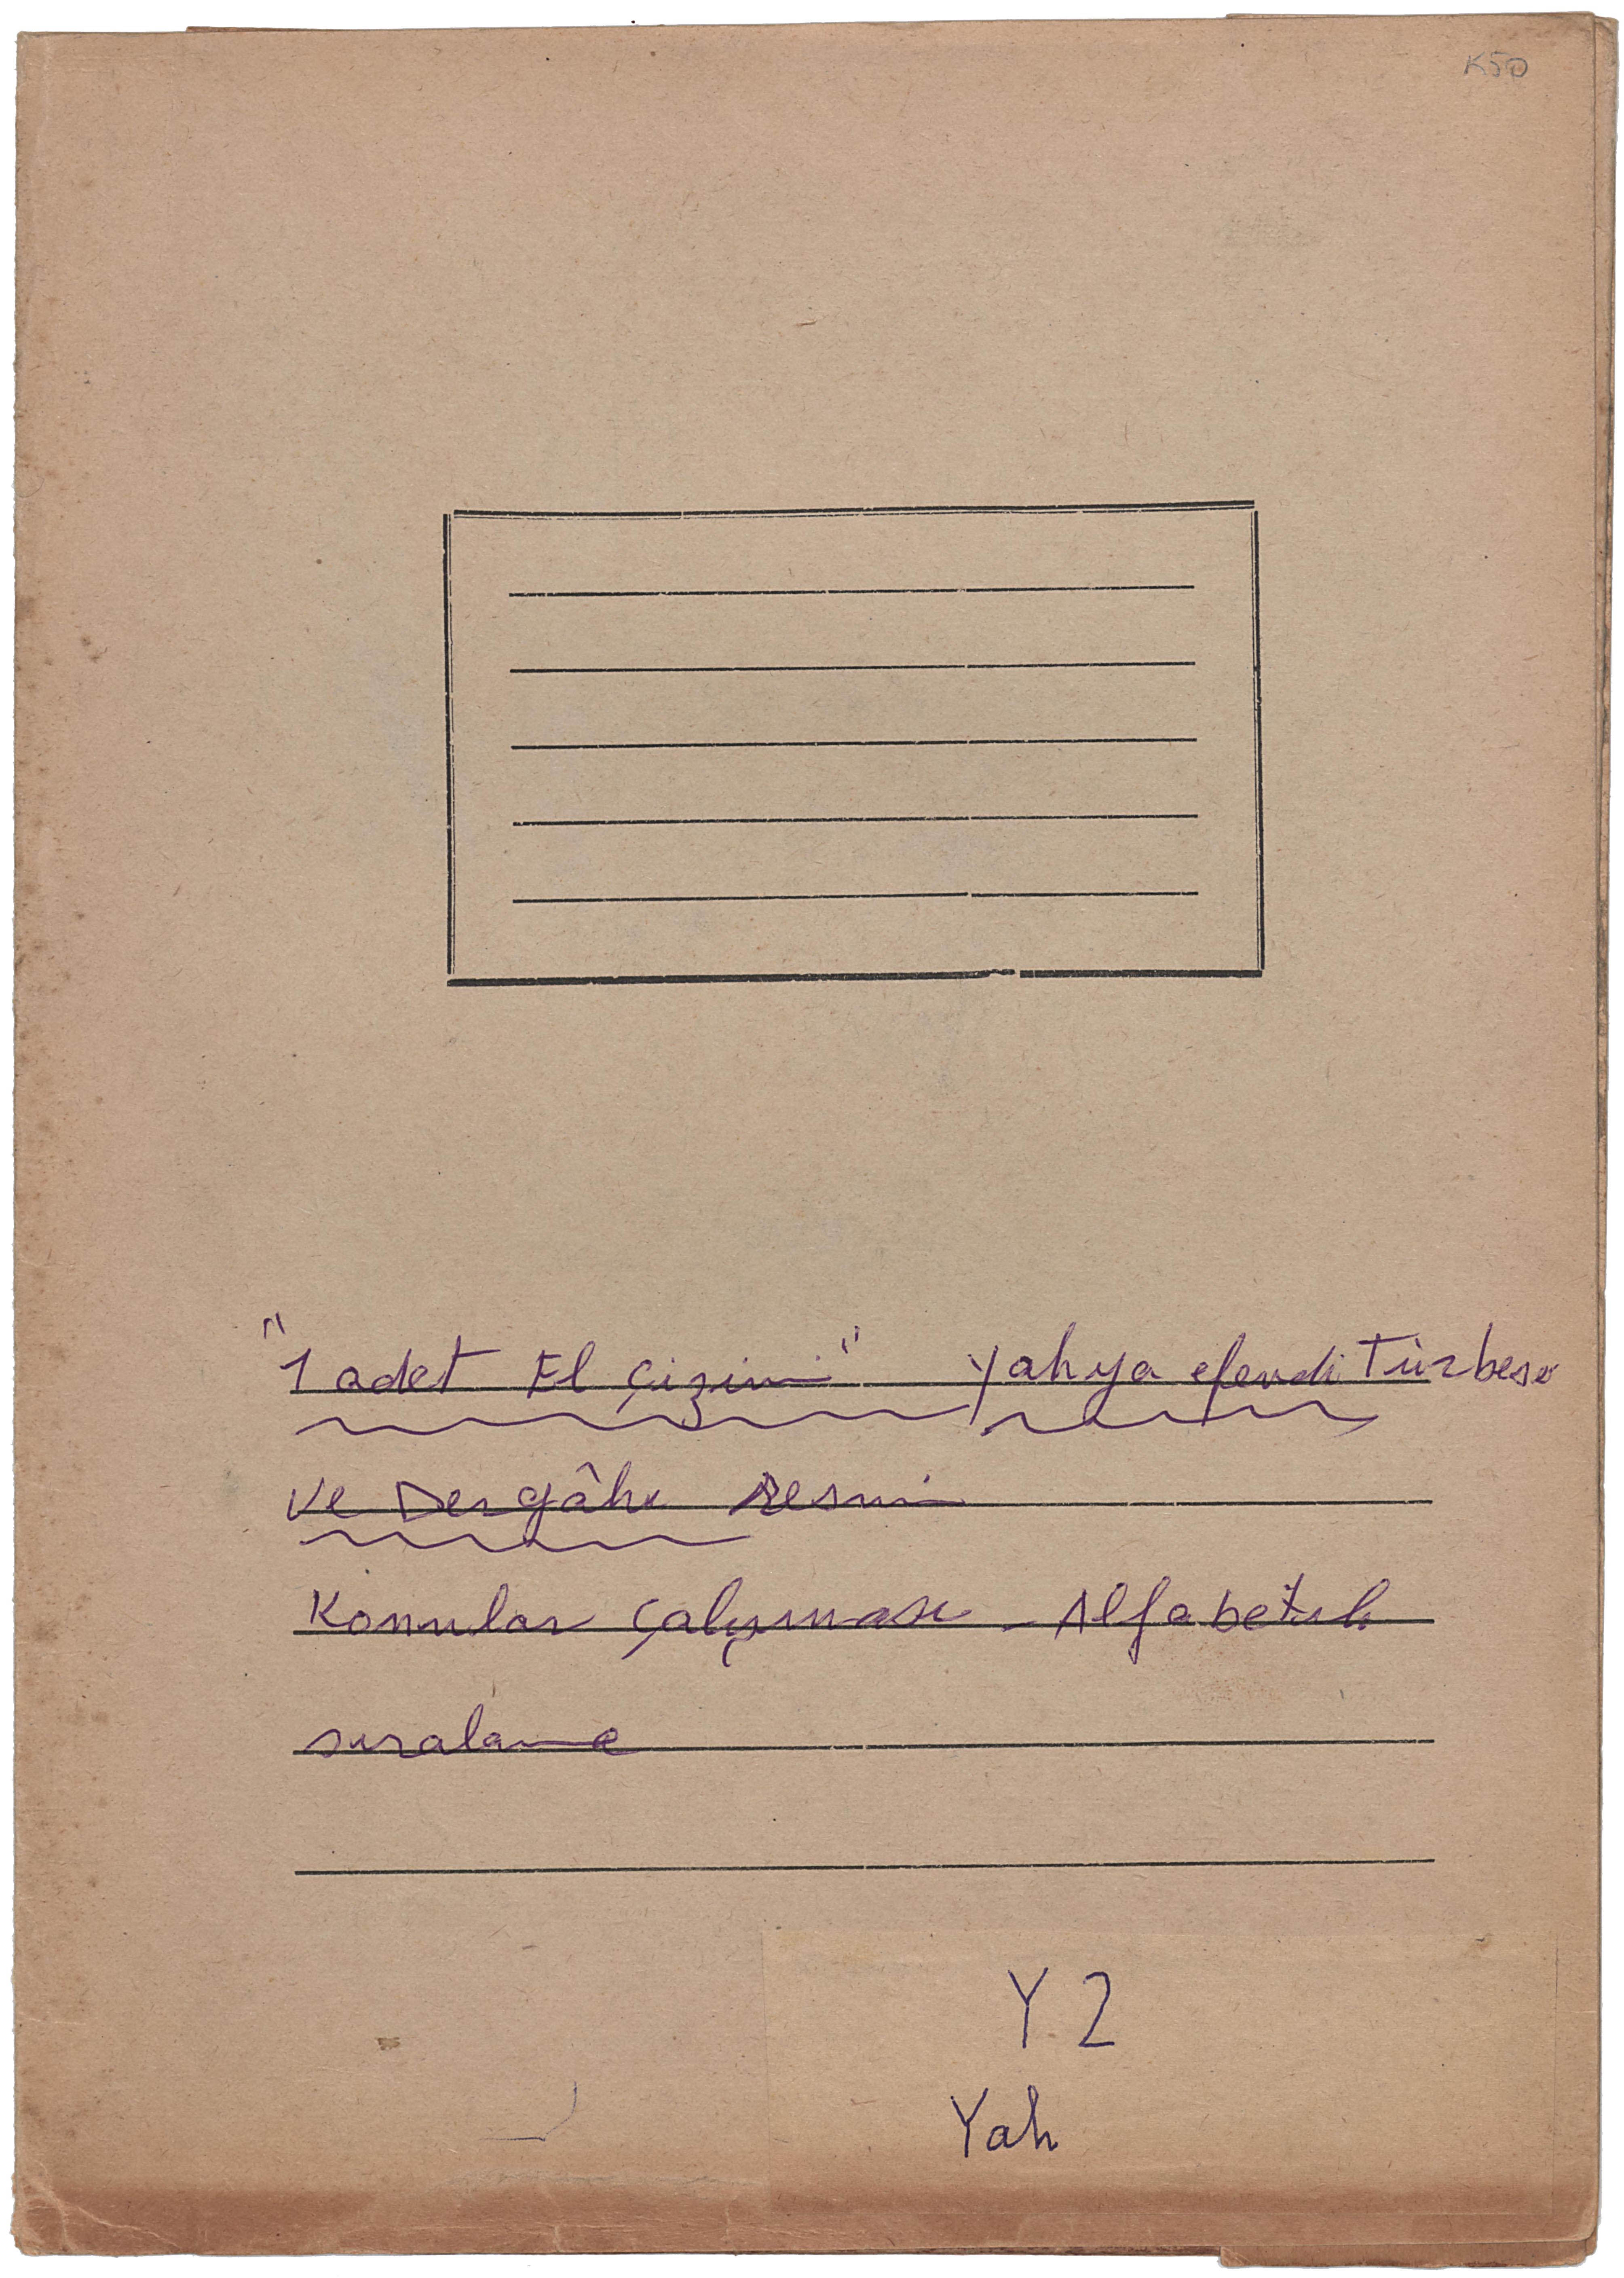 K50
"1 adet El Çizimi" Yahya efendi Türbesi
ve Dergâhı Resmi
Konular Çalışması - Alfabetik
sıralama
Y 2
Yah